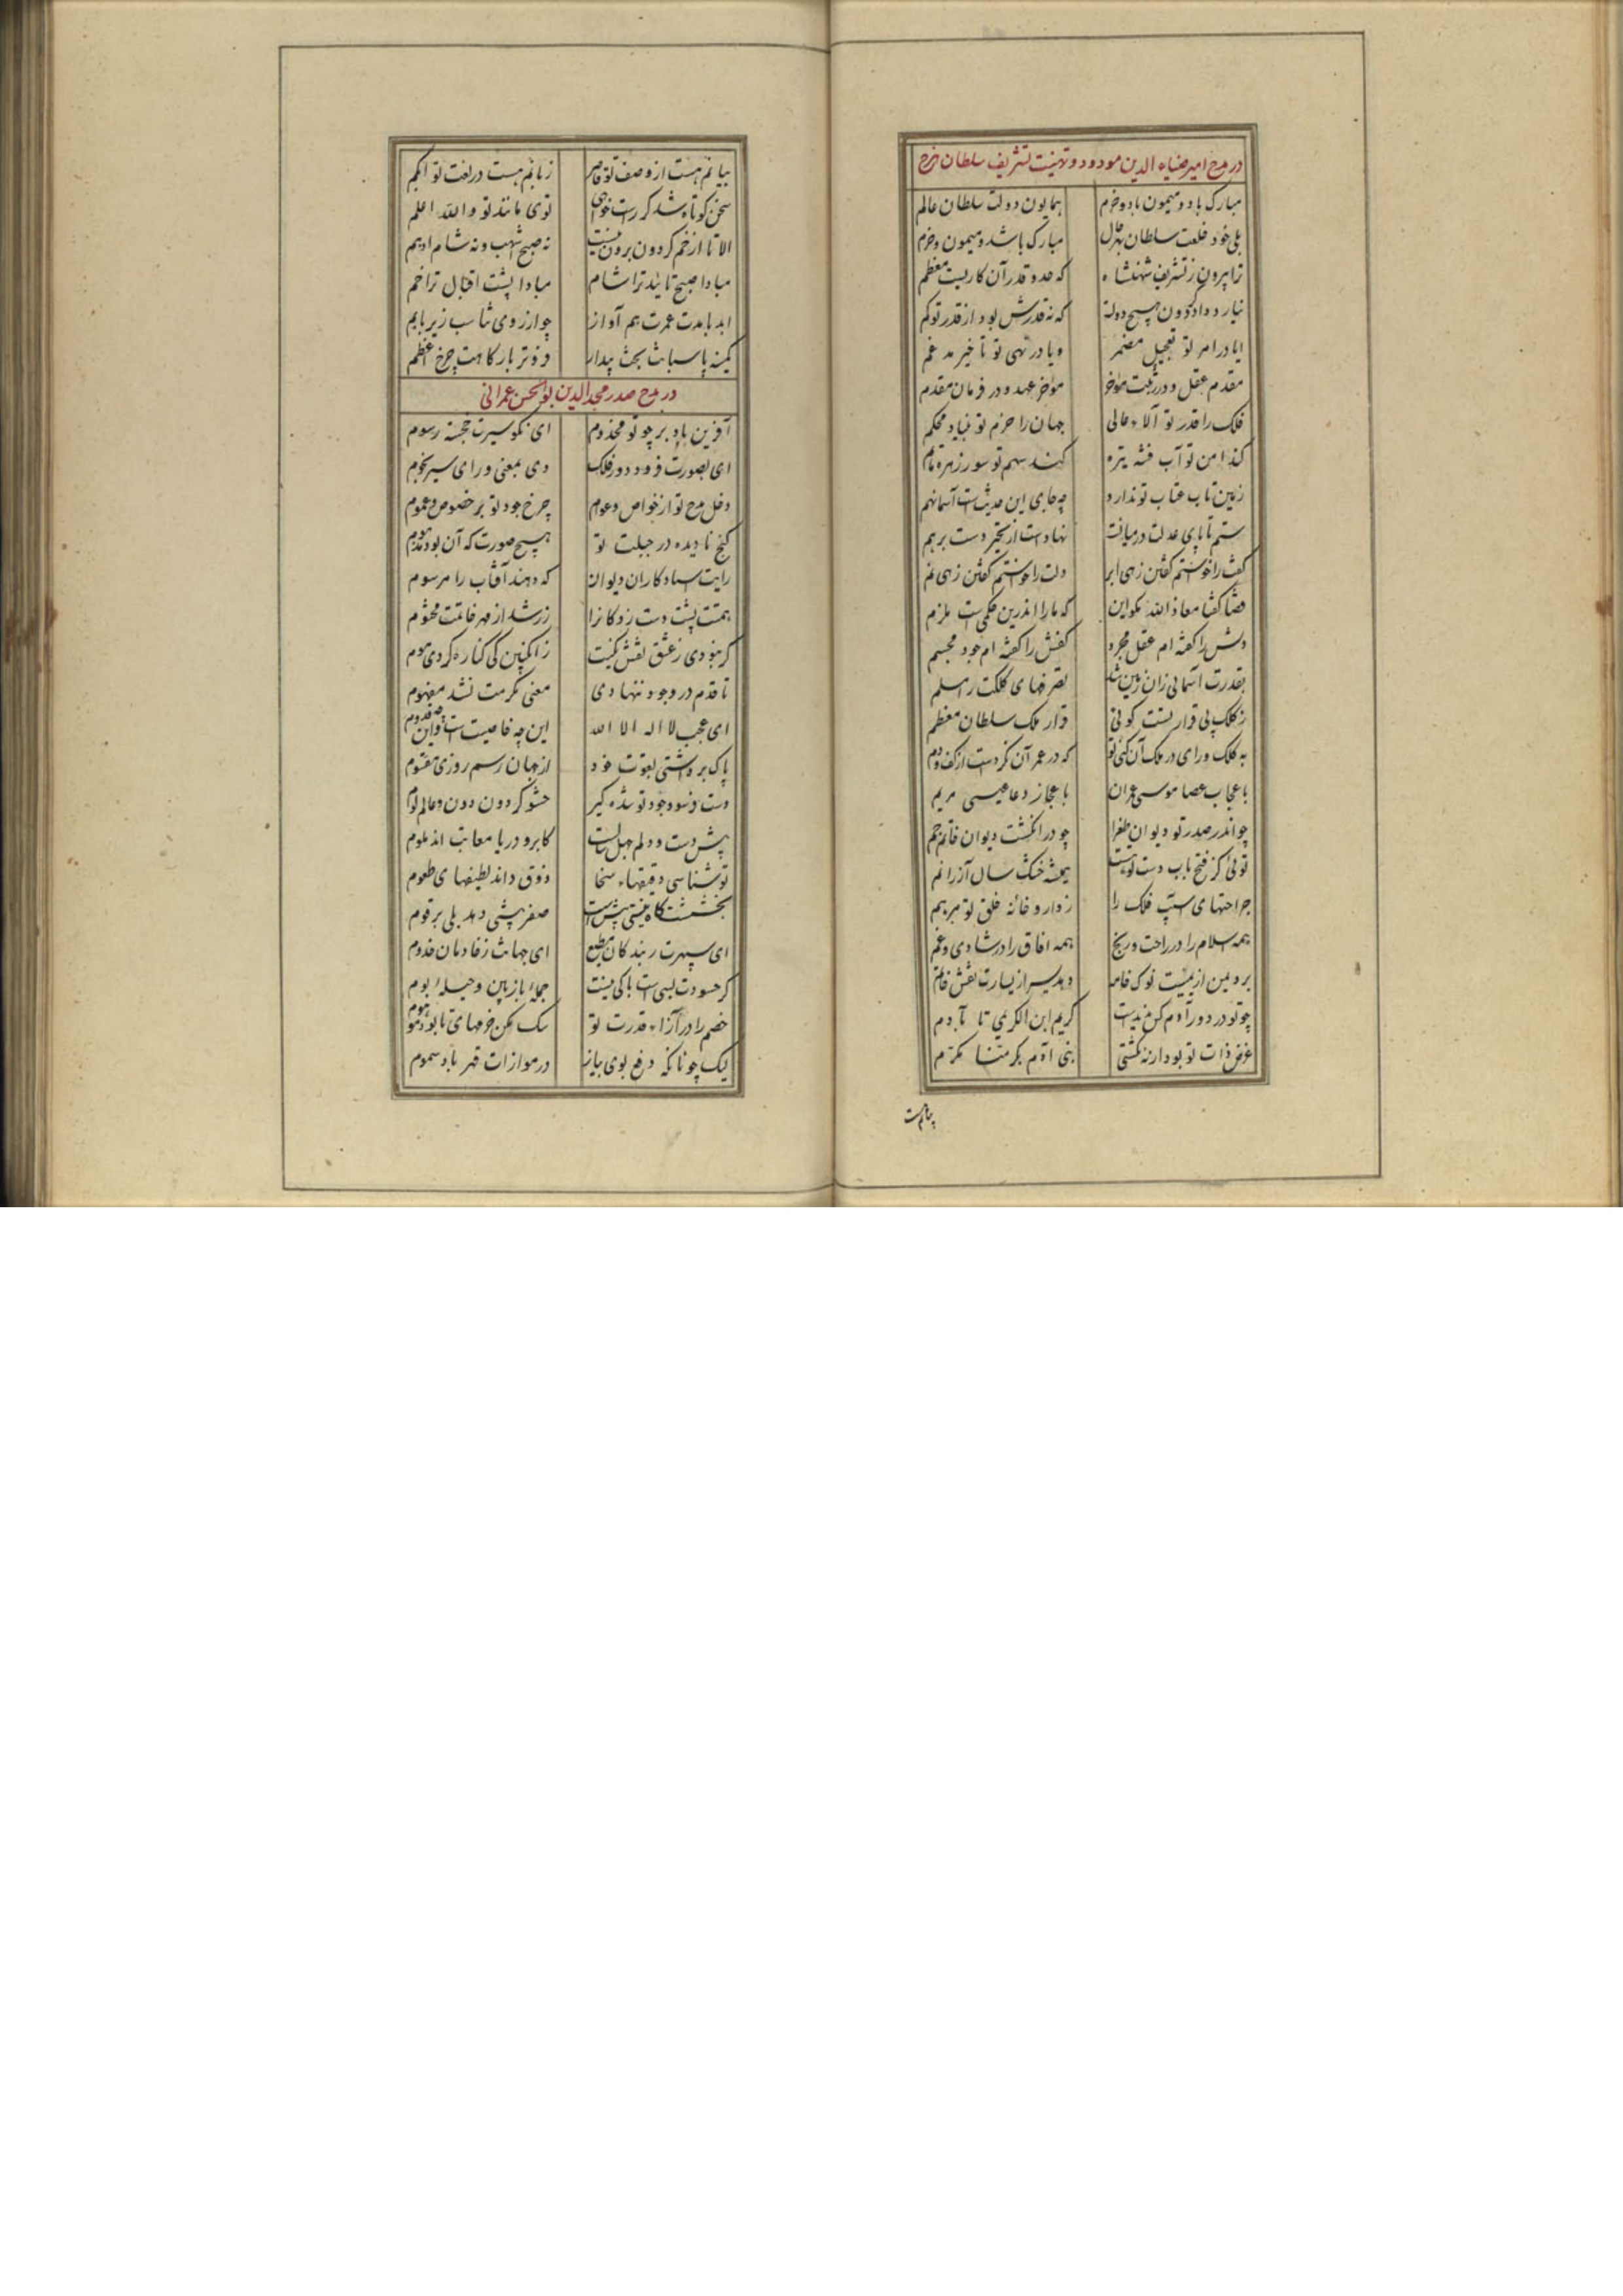 در مدح امیر ضیاء الدین مودود و تهنیت تشریف سلطان
مبارک باد و میمون باد و خرم همایون دولت سلطان عالم
بلی خود خلعت سلطان بهر حال مبارک باشد و میمون و خرم
ترا بیرون ز تشریف شهنشاه که حد و قدر آن کاریست معظم
نیارد داد گردون هیچ دولت که نه قدرش بود از قدر تو کم
ایا در امر تو تعجیل مضمر و یا در نهی تو تاخیر مدغم
مقدم عقل و در رتبت مواخر مواخر عهد و در فرمان مقدم
فلک را قدر تو والاء عالی جهان را حزم تو بنیاد محکم
کند امن تو آب فتنه تیره کند سهم تو سور زهره ماتم
زمین تاب عتاب تو ندارد چه جای این حدیث است آسمانهم
ستم تا پای عدلت در میانست نهاد است از تحیر دست بر هم
کفت را خواستم گفتن زهی ابر دلت را خواستم گفتن زهی یم
قضا گفتا معاذ الله مگو این که ما را اندرین حکمی است ملزم
دلش را گفته ام عقل مجرد کفش را گفته ام جود مجسم
بقدرت آسمانی زان زمین شد تصرفهای کلکت را مسلم
ز کلک بی قرار تست گوئی قرار ملک سلطان معظم
به کلک و رای در ملک آن کنی تو که در عمر آن نکردست از کف و دم
باعجاب عصا موسی عمران باعجاز دعا عیسی مریم
چو اندر صدر تو دیوان طغرا چو در انگشت دیوان خاتم جم
توئی کز فتح باب دست تو هست همیشه خشک سال آز را نم
جراحتهای آسیب فلک را ز دارو خانه خلق تو مرهم
همه اسلام را در راحت و رنج همه آفاق را در شادی و غم
بر و یمن از یمینت نوک خامه دهد یسر از یسارت نقش خاتم
چو تو در دور آدم کس ندیدست کریم ابن الکریمی تا بآدم
غرض ذات تو بود ارنه نگشتی بنی آدم بکرمنا مکرم
بیانم هست
بیانم هست از وصف تو قاصر زبانم هست در نعت تو ابکم
سخن کوتاه شد گر راست خواهی توی مانند تو والله اعلم
الا تا از خم گردون برون نیست نه صبح اشهب و نه شام ادهم
مبادا صبح تایید ترا شام مبادا پشت اقبال ترا خم
ابد با مدت عمرت هم آواز چو از روی تناسب زیر با بم
کمینه پاسبانت بخت بیدار فروتر بارگاهت چرخ اعظم
در مدح صدر مجد الدین بو الحسن عمرانی
آفرین باد بر چو تو مخدوم ای نکو سیرت خجسته رسوم
ای بصورت فرود دور فلک وی بمعنی ورای سیر نجوم
دخل مدح تو از خواص و عوام خرج جود تو بر خصوص و عموم
گنج نادیده در جبلت تو هیچ صورت که آن بود مذموم
رایت استاد کاران دیوان که دهند آفتاب را مرسوم
همتت پشت دست زد کانرا زر شد از مهر خاتمت مختوم
گر نبودی ز عشق نقش نگینت ز انگبین کی کناره کردی موم
تا قدم در وجود ننهادی معنی مکرمت نشد مفهوم
ای عجب لا اله الا الله این چه خاصیت است و این چه قدوم
پاک برداشتی بقوت خود از جهان رسم روزی مقسوم
دست فرسود جود تو شده گیر حشو گردون دون و عالم لوم
پیش دست و دلم جهل سالست کابر و دریا معاتب اند و ملوم
تو شناسی دقیقهاء سخا ذوق داند لطیفهای طعوم
بخششت گاه نیستی پیش است صفر پیشی دهد بلی بر رقوم
ای سپهرت ز بندگان مطیع ای جهانت ز خادمان خدوم
گر حسودت بسی است باکی نیست حمله باز بین و حیله بوم
خصم را در ازاء قدرت تو سگ ممکن خرمهای نا بوده موهوم
لیک چونانکه دفع بوی پیاز در موازات قهر باد سموم